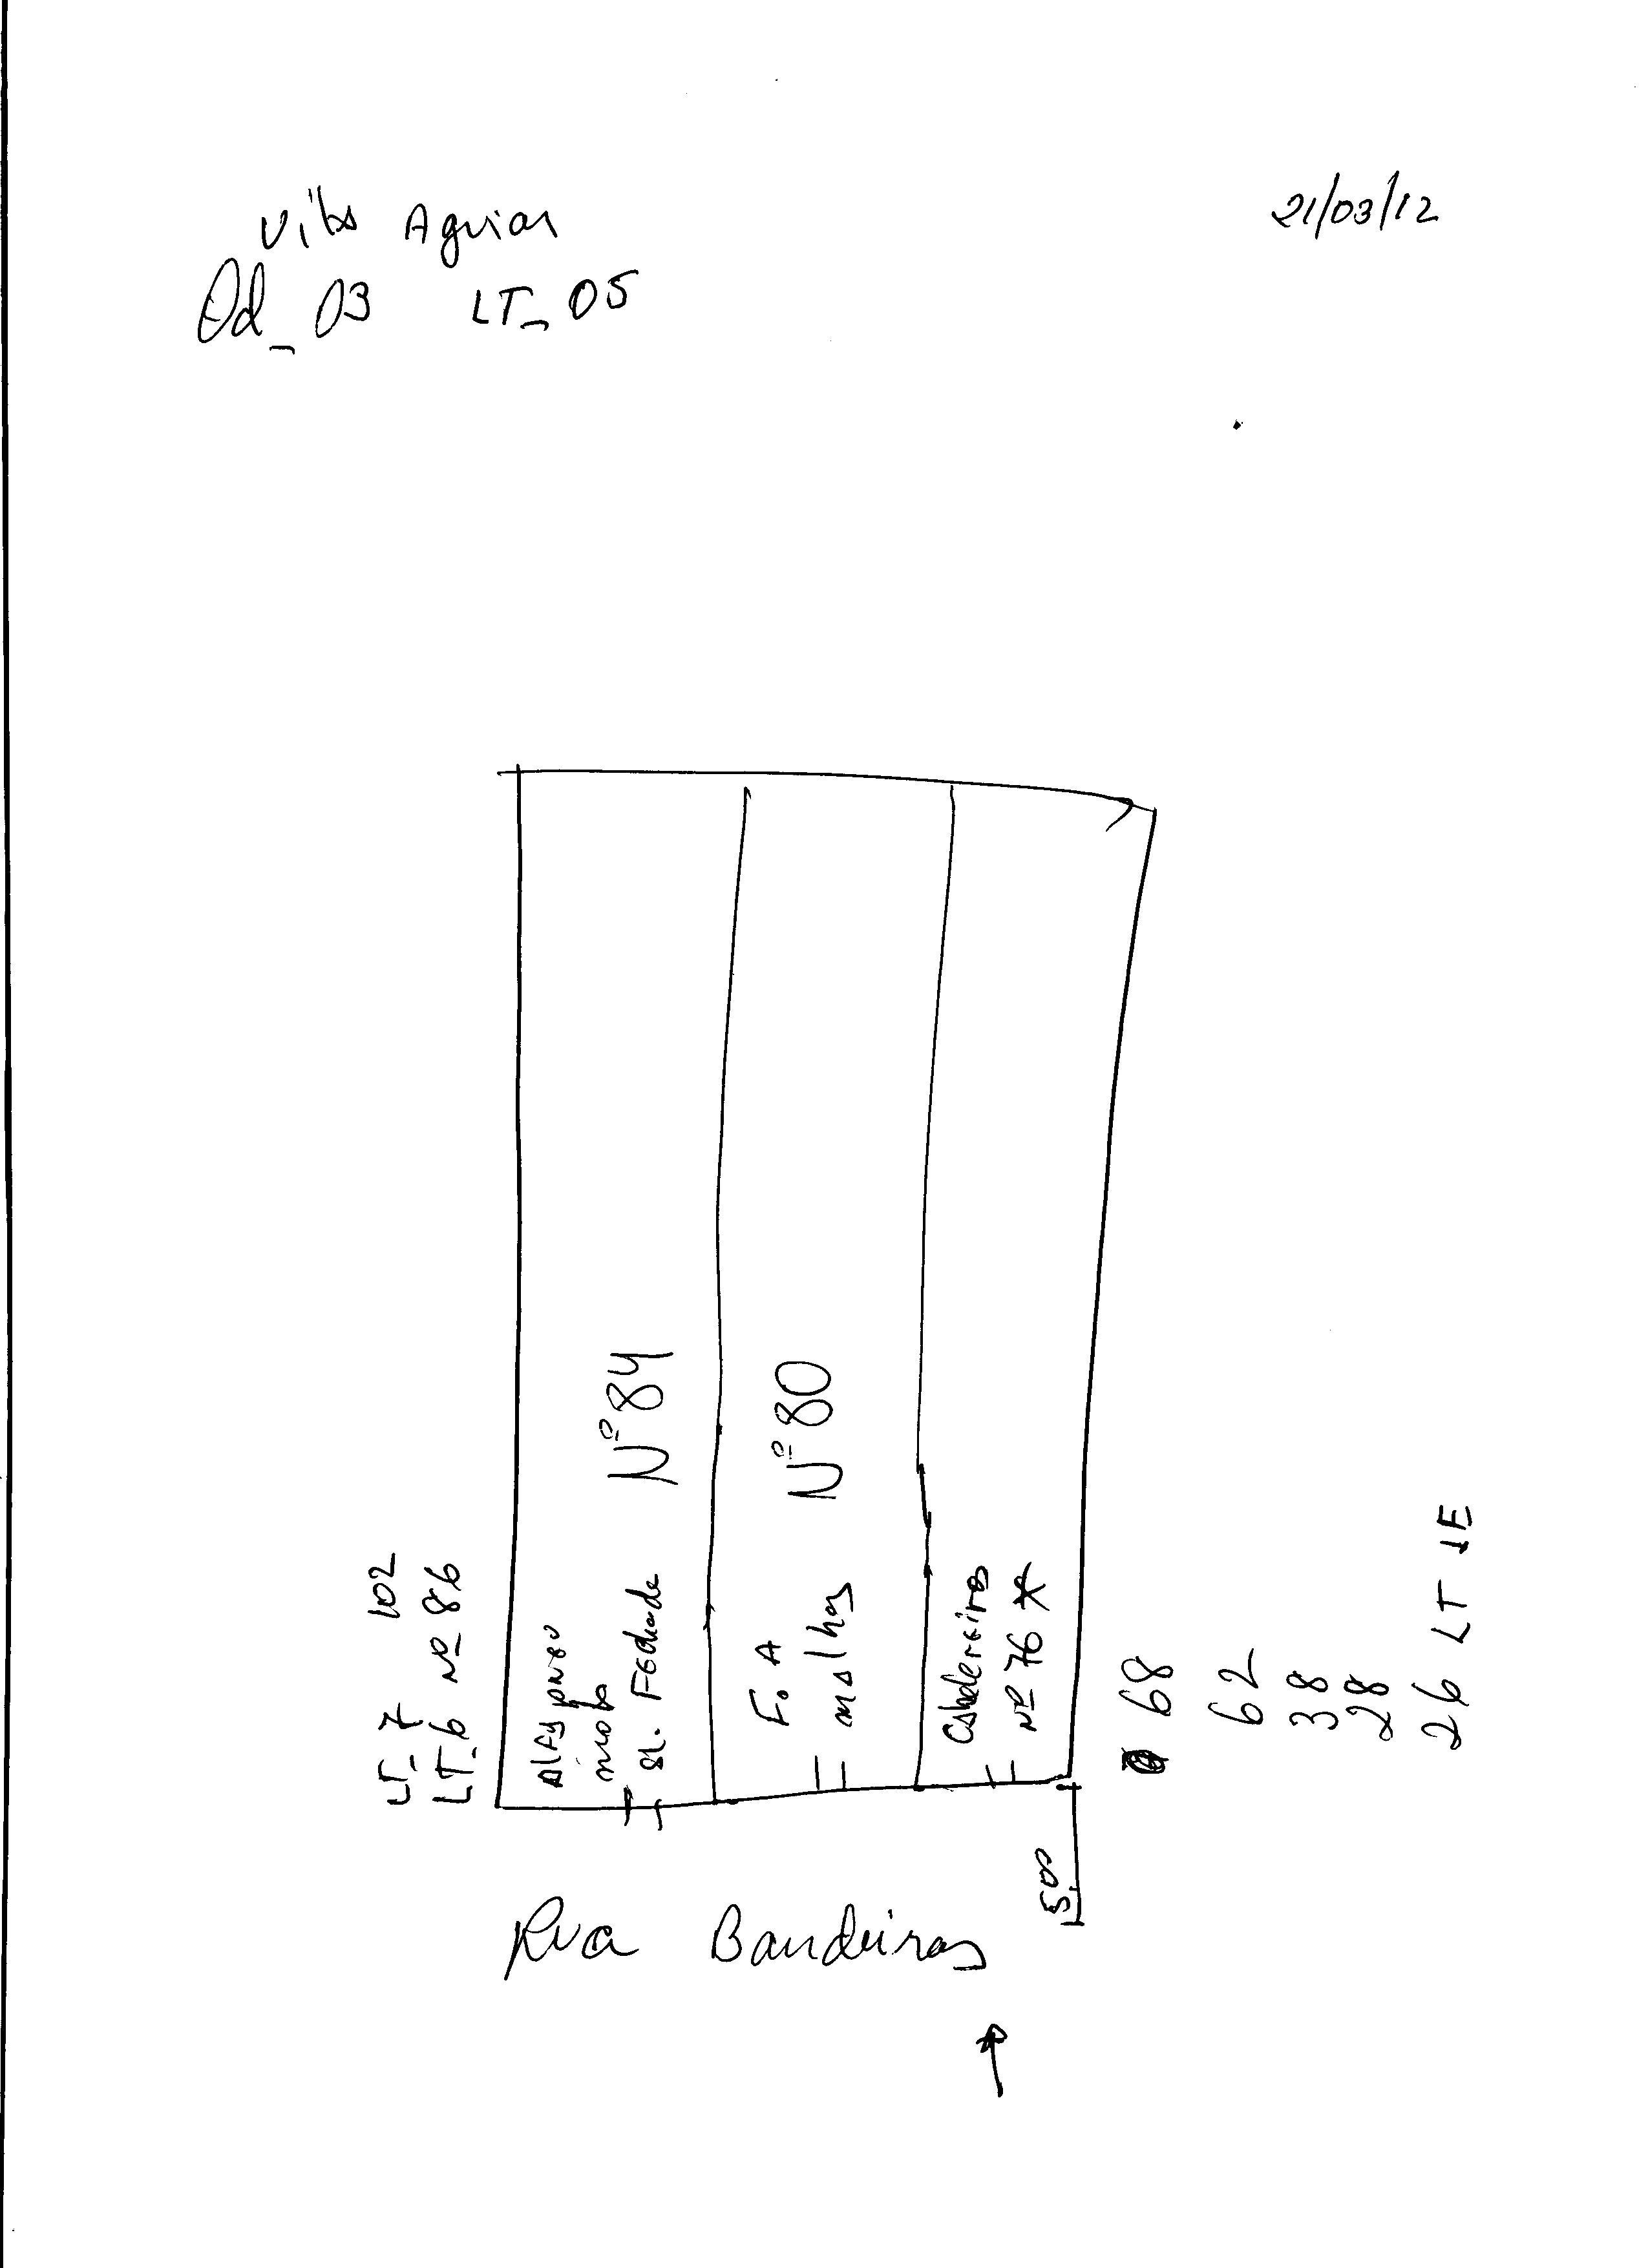 Vila Aguiar
21/03/12
Qd_03 LT_05
LT_7 102
LT_6 Nº 86
moto
Sl. Fechada
Nº 84
F. A
malhas
Nº 80
Cabeleireiros
Nº 76 *
68
62
38
28
26 LT 1E
5.00
Rua Bandeiras